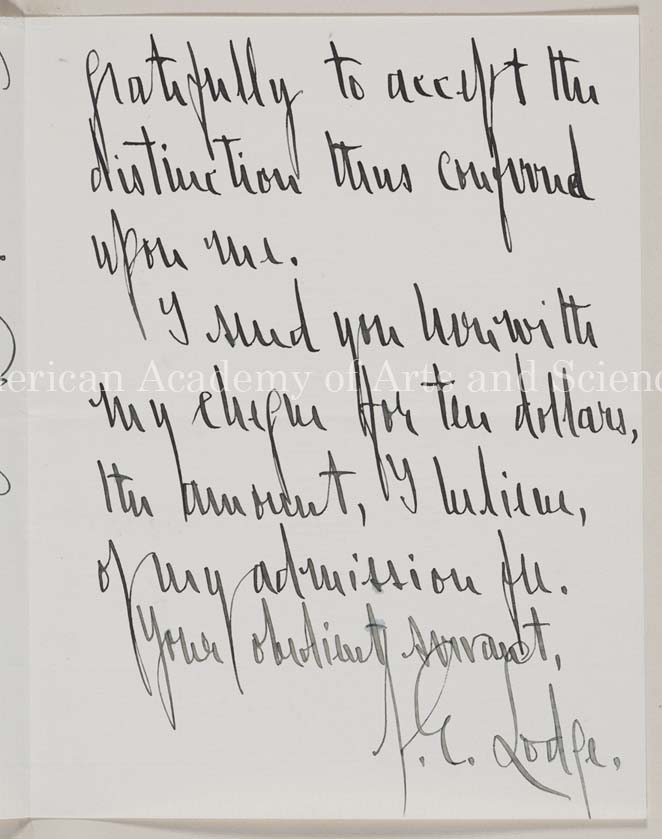 gratefully to accept the
distinction thus conferred
upon me.
I send you herewith
American Academy of Arts and Scienc
my cheque for ten dollars,
the amount, I believe,
of my admission fee.
Your obedient servant,
H. C. Lodge.